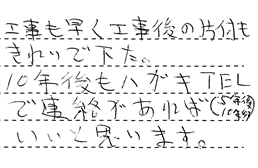 工事も早く工事後の片付も
きれいで下た。
10年後もハガキTEL
で連絡があれば(5年後10年後)
いいと思います。